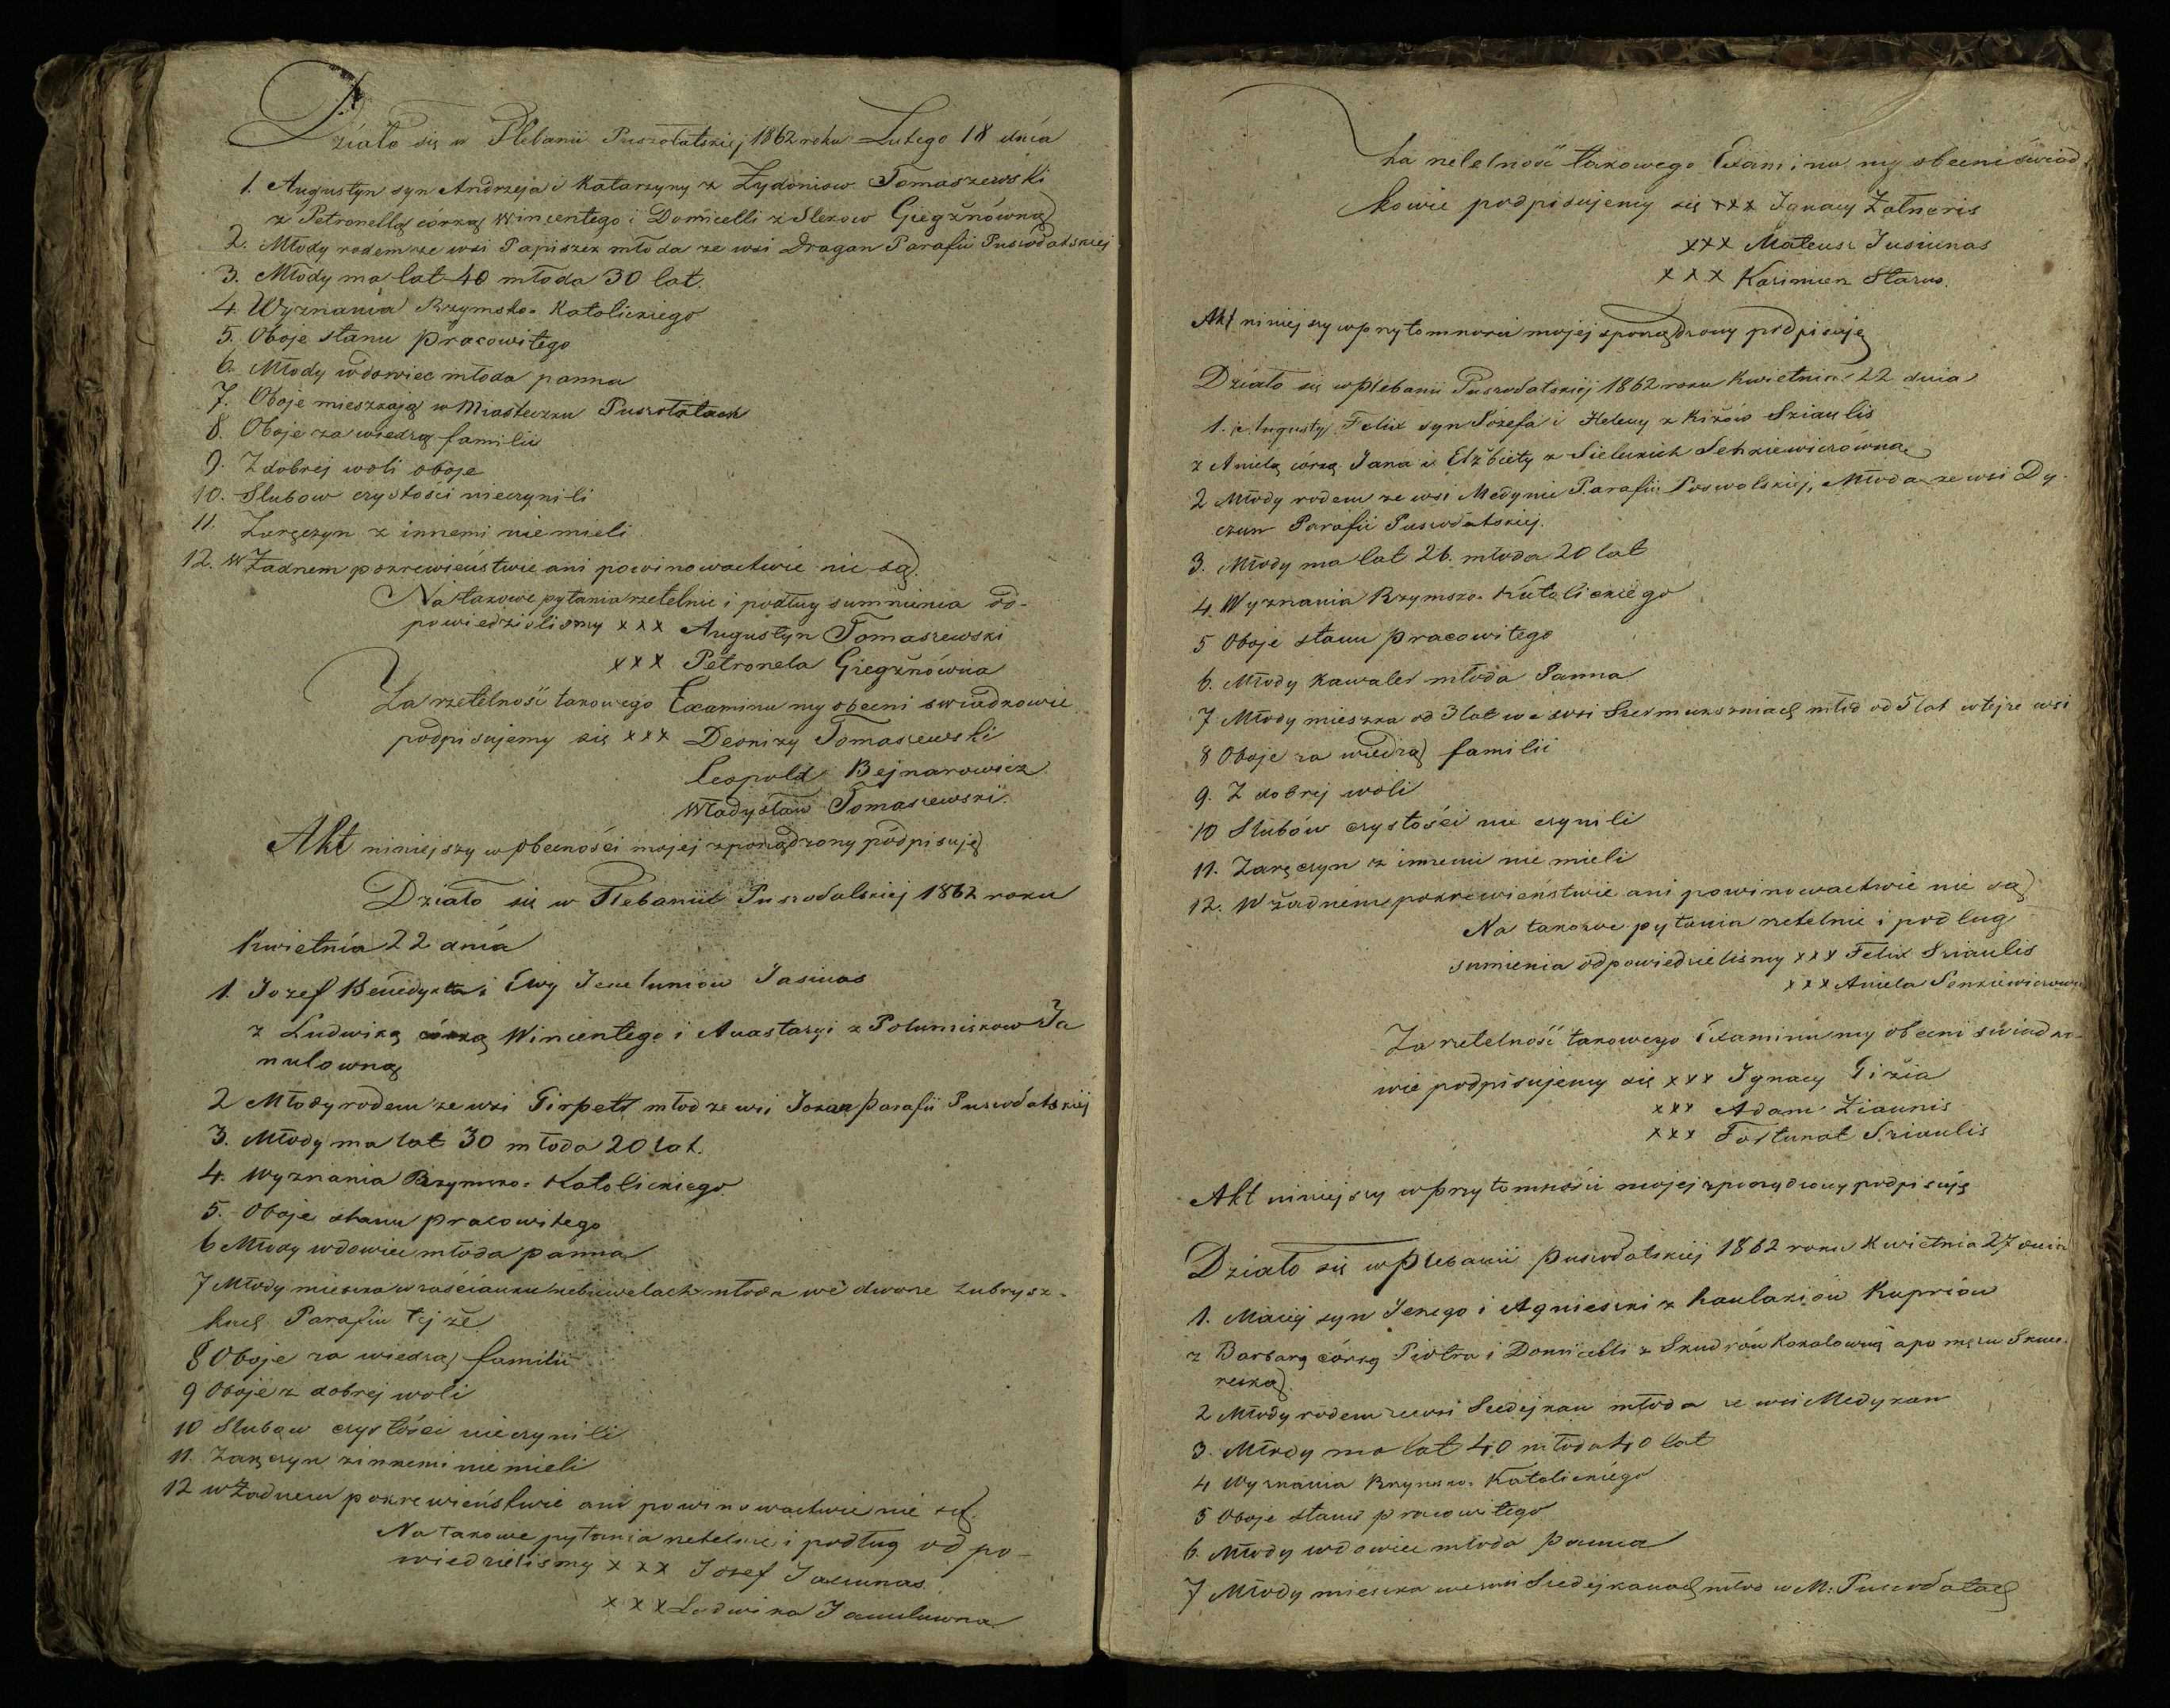 Działo się w Plebanii Puszołatskiej 1862 roku Lutego 18 dnia
1. Augustyn syn Andrzeja i Katarzyny z Żydoniow Tomaszewski
z Petronellą córką Wincentego i Domicelli z Slezow Giegżnówną
2. Młody rodem ze wsi Papiszek młoda ze wsi Dragan Parafii Puszołatskiej
3. Młody ma lat 40 młoda 30 lat.
4. Wyznania Rzymsko-Katolickiego
5. Oboje stanu pracowitego
6. Młody wdowiec młoda panna
7. Oboje mieszkają w Miasteczku Puszołatach
8. Oboje za wiedzą familii
9. Z dobrej woli oboje
10. Slubow czystości nieczynili
11. Zaręczyn z innemi niemieli
12. w Żadnem pokrewieństwie ani powinowactwie nie są.
Na takowe pytania rzetelnie i podług sumnienia od-
powiedzielismy xxx Augustyn Tomaszewski
xxx Petronela Giegżnówna
Za rzetelność takowego Examinu my obecni swiadkowie
podpisujemy się xxx Deonizy Tomaszewski
Leopold Bejnarowicz
Władysław Tomaszewski.
Akt niniejszy w obecności mojej sporządzony podpisuję
Działo się w Plebanii Puszołatskiej 1862 roku
Kwietnia 22 dnia
1. Jozef Benedykta i Ewy Jasiunas
z Ludwiką córką Wincentego i Anastazyi z Ja
nulowną
2 Młody rodem ze wsi Girpett młod ze wsi Parafii Puszołatskiej
3. Młody ma lat 30 młoda 20 lat.
4. Wyznania Rzymsko-Katolickiego
5. Oboje stanu pracowitego
6 Młody wdowiec młoda panna
7 Młody mieszka w zaścianku młoda we dworze Zubrysz-
kach Parafii tejże
8 Oboje za wiedzą familii
9 Oboje z dobrej woli
10 Slubow czystości nieczynili
11. Zaręczyn z innemi niemieli
12 w Żadnem pokrewieństwie ani powinowactwie nie są.
Na takowe pytania rzetelnie i podług odpo-
wiedzielismy xxx Jozef Jasiunas
xxx Ludwika Janulowna
Za rzetelność takowego Examinu my obecni świad-
kowie podpisujemy się xxx Ignacy Żołneris
xxx Mateusz Jusiunas
xxx Kazimierz Starus.
Akt niniejszy w przytomności mojej sporządzony podpisuję
Działo się w plebanii Puszołatskiej 1862 roku Kwietnia 22 dnia
1. Felix syn Józefa i Heleny z Kiżów Sziaulis
z Anielą córką Jana i Elżbiety z Sieleckich Senkiewiczówną
2 Młody rodem ze wsi Medynie Parafii Poswolskiej, Młoda ze wsi Dy-
czun Parafii Puszołatskiej.
3. Młody ma lat 26. młoda 20 lat
4. Wyznania Rzymsko-Katolickiego
5 Oboje stanu pracowitego
6. Młody Kawaler młoda Panna
7 Młody mieszka od 3 lat we wsi młod od 5 lat w tejże wsi
8 Oboje za wiedzą familii
9. Z dobrej woli
10 Slubów czystości nie czynili
11. Zaręczyn z innemi nie mieli
12. W żadnem pokrewieństwie ani powinowactwie nie są
Na takowe pytania rzetelnie i podług
sumienia odpowiedzielismy xxx Felix Sziaulis
xxx Aniela Senkiewiczowna
Za rzetelność takowego Examinu my obecni swiadko-
wie podpisujemy się xxx Ignacy Giżia
xxx Adam Ziaunis
xxx Fortunat Sziaulis
Akt niniejszy w przytomności mojej sporządzony podpisuję
Działo się w plebanii Puszołatskiej 1862 roku Kwietnia 27 dnia
1. Maciej syn Jerzego i Agnieszki z Kaulakiów Kuprión
z Barbarą córką Piotra i Domicelli z Skudrów Kokalowną a po mężu
2 Młody rodem ze wsi Szedejkan młoda ze wsi Medykan
3. Młody ma lat 40 młoda 40 lat
4 Wyznania Rzymsko-Katolickiego
5 Oboje stanu pracowitego
6. Młody wdowiec młoda panna
7 Młody mieszka we wsi Szedejkanach młod w M: Puszołatach